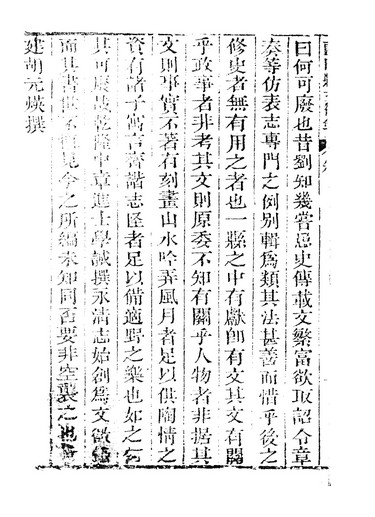 曰何可廢也昔劉知幾嘗忌史傳載文繁富欲取詔令章
奏等仿表志專門之例別輯爲類其法甚善而惜乎後之
修史者無有用之者也一縣之中有獻卽有文其文有關
乎政事者非考其文則原委不知有關乎人物者非据其
文則事實不著石刻畫山水吟弄風月者足以供陶情之
資有諸子寓言齊諧志怪者足以備適野之樂也如之何
其可廢其乾隆中章進士學誠撰永清志始創爲文徵
而其書世不復見今之所編未知同否要非空襲之也
建胡元煐撰